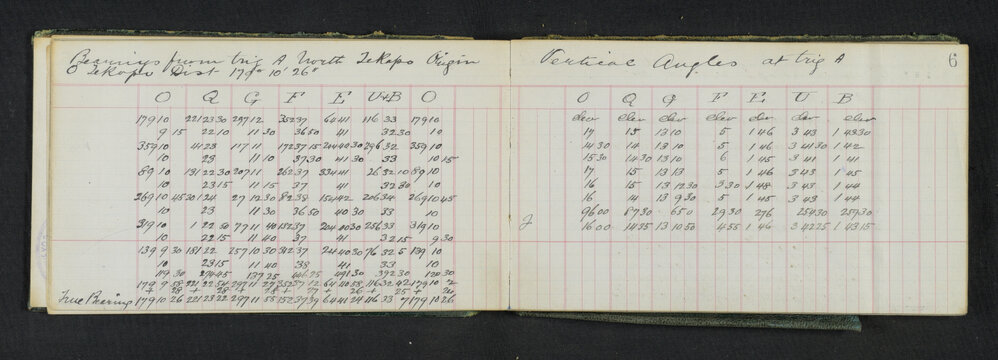 Bearings from trig A North Tekapo Origin
O Tekapo Dist 179° 10' 26"
O Q G F E U+B O
179 10 221 23 30 297 12 352 37 64 41 116 33 179 10
9 15 22 10 11 30 36 50 41 32 30 10
359 10 41 23 117 11 172 37 15 244 40 30 296 32 359 10
10 23 11 10 37 30 41 30 33 10 15
89 10 131 22 30 207 11 262 37 334 41 26 32 10 89 10
10 23 15 11 15 37 41 32 30 10
269 10 45 301 24 27 12 30 82 38 154 42 206 34 269 10 45
10 23 11 30 36 50 40 30 33 10
319 10 1 22 50 77 11 40 132 37 204 40 30 256 33 319 10
10 22 15 11 40 37 41 32 15 9 30
139 9 30 181 22 257 10 30 312 37 24 40 30 76 32 5 139 10
10 23 15 11 40 38 41 33 10
119 30 274 45 137 25 446 25 491 30 392 30 120 30
179 9 58 221 22 54 297 11 27 352 37 12 64 40 58 116 32 42 179 10 2
+ 28 + 28 + 28 + 27 + 26 + 25 + 24
True Bearing 179 10 26 221 23 22 297 11 55 352 37 39 64 41 24 116 33 7 179 10 26
Vertical Angles at trig A 6
O Q G F E U B
elev elev elev elev elev elev elev
17 15 13 10 5 1 46 3 43 1 43 30
14 30 14 13 10 5 1 46 3 41 30 1 42
15 30 14 30 13 10 6 1 45 3 41 1 41
17 15 13 13 5 1 46 3 43 1 45
16 15 13 12 30 3 30 1 48 3 43 1 44
16 14 13 9 30 5 1 45 3 43 1 44
96 00 87 30 65 0 29 30 276 254 30 259 30
16 00 14 35 13 10 50 4 55 1 46 3 42 25 1 43 15